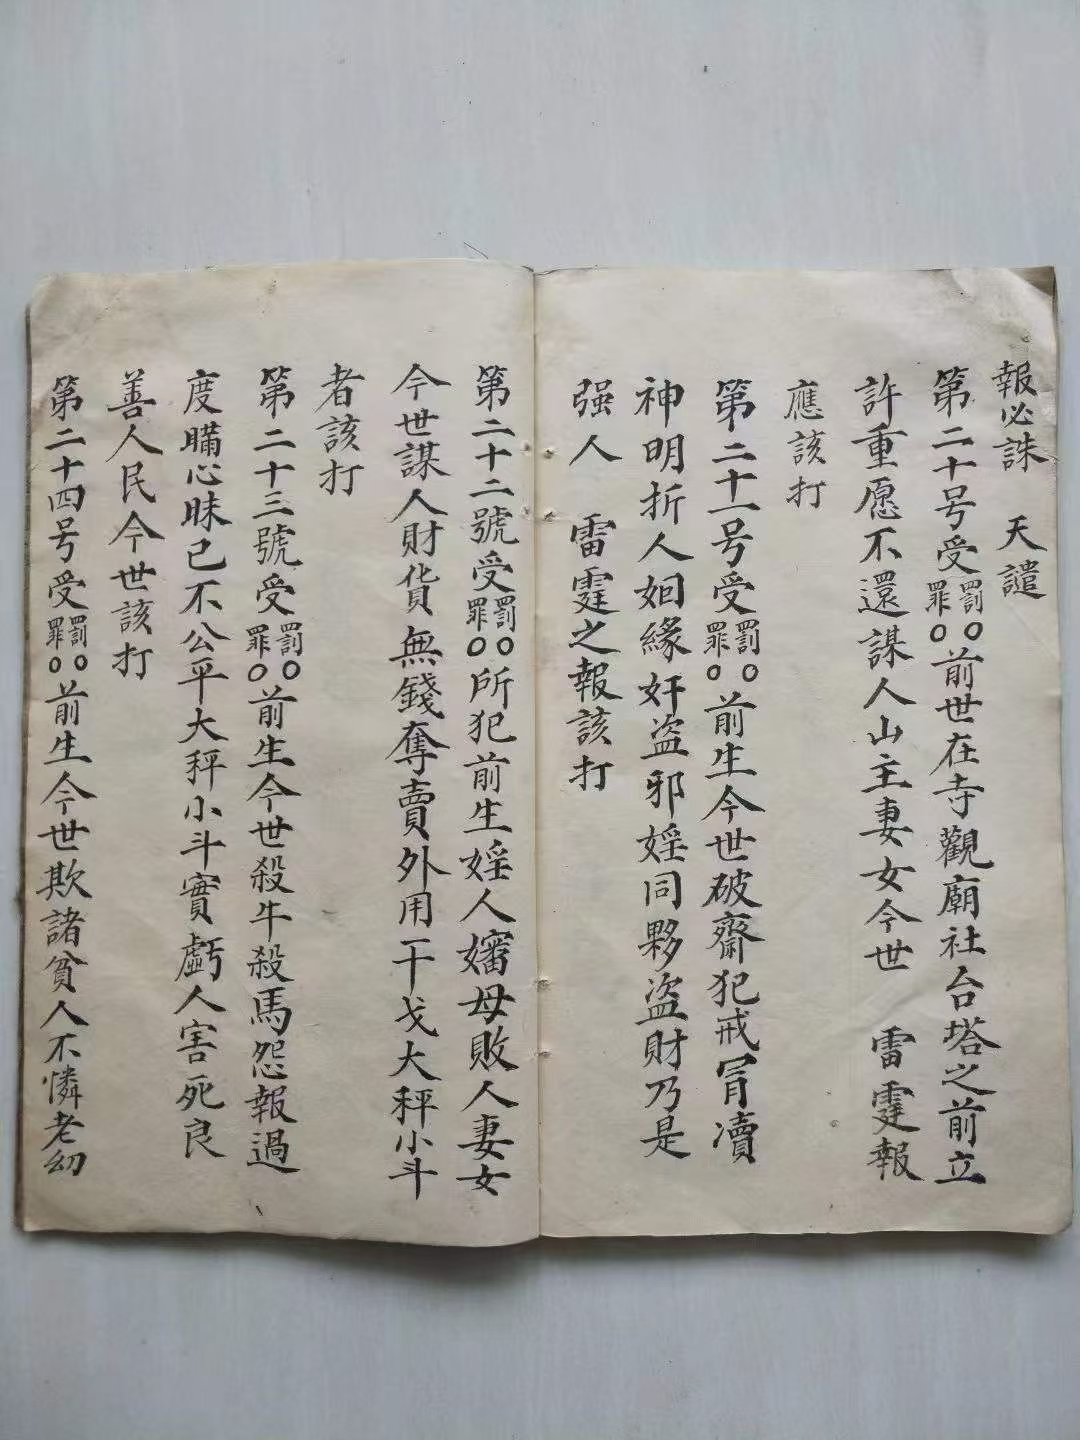 報必誅　天譴
第二十号受罰罪〇〇前世在寺觀廟社台塔之前立
許重愿不還謀人山主妻女今世　雷霆報
應該打
第二十一号受罰罪〇〇前生今世破齋犯戒冒瀆
神明折人姻緣奸盗邪婬同夥盗財乃是
强人　雷霆之報該打
第二十二號受罰罪〇〇所犯前生婬人嬸母敗人妻女
今世謀人財貨無錢奪賣外用干戈大秤小斗
者該打
第二十三號受罰罪〇〇前生今世殺牛殺馬怨報過
度瞞心昧己不公平大秤小斗實虧人害死良
善人民今世該打
第二十四号受罰罪〇〇前生今世欺諸貧人不憐老幼